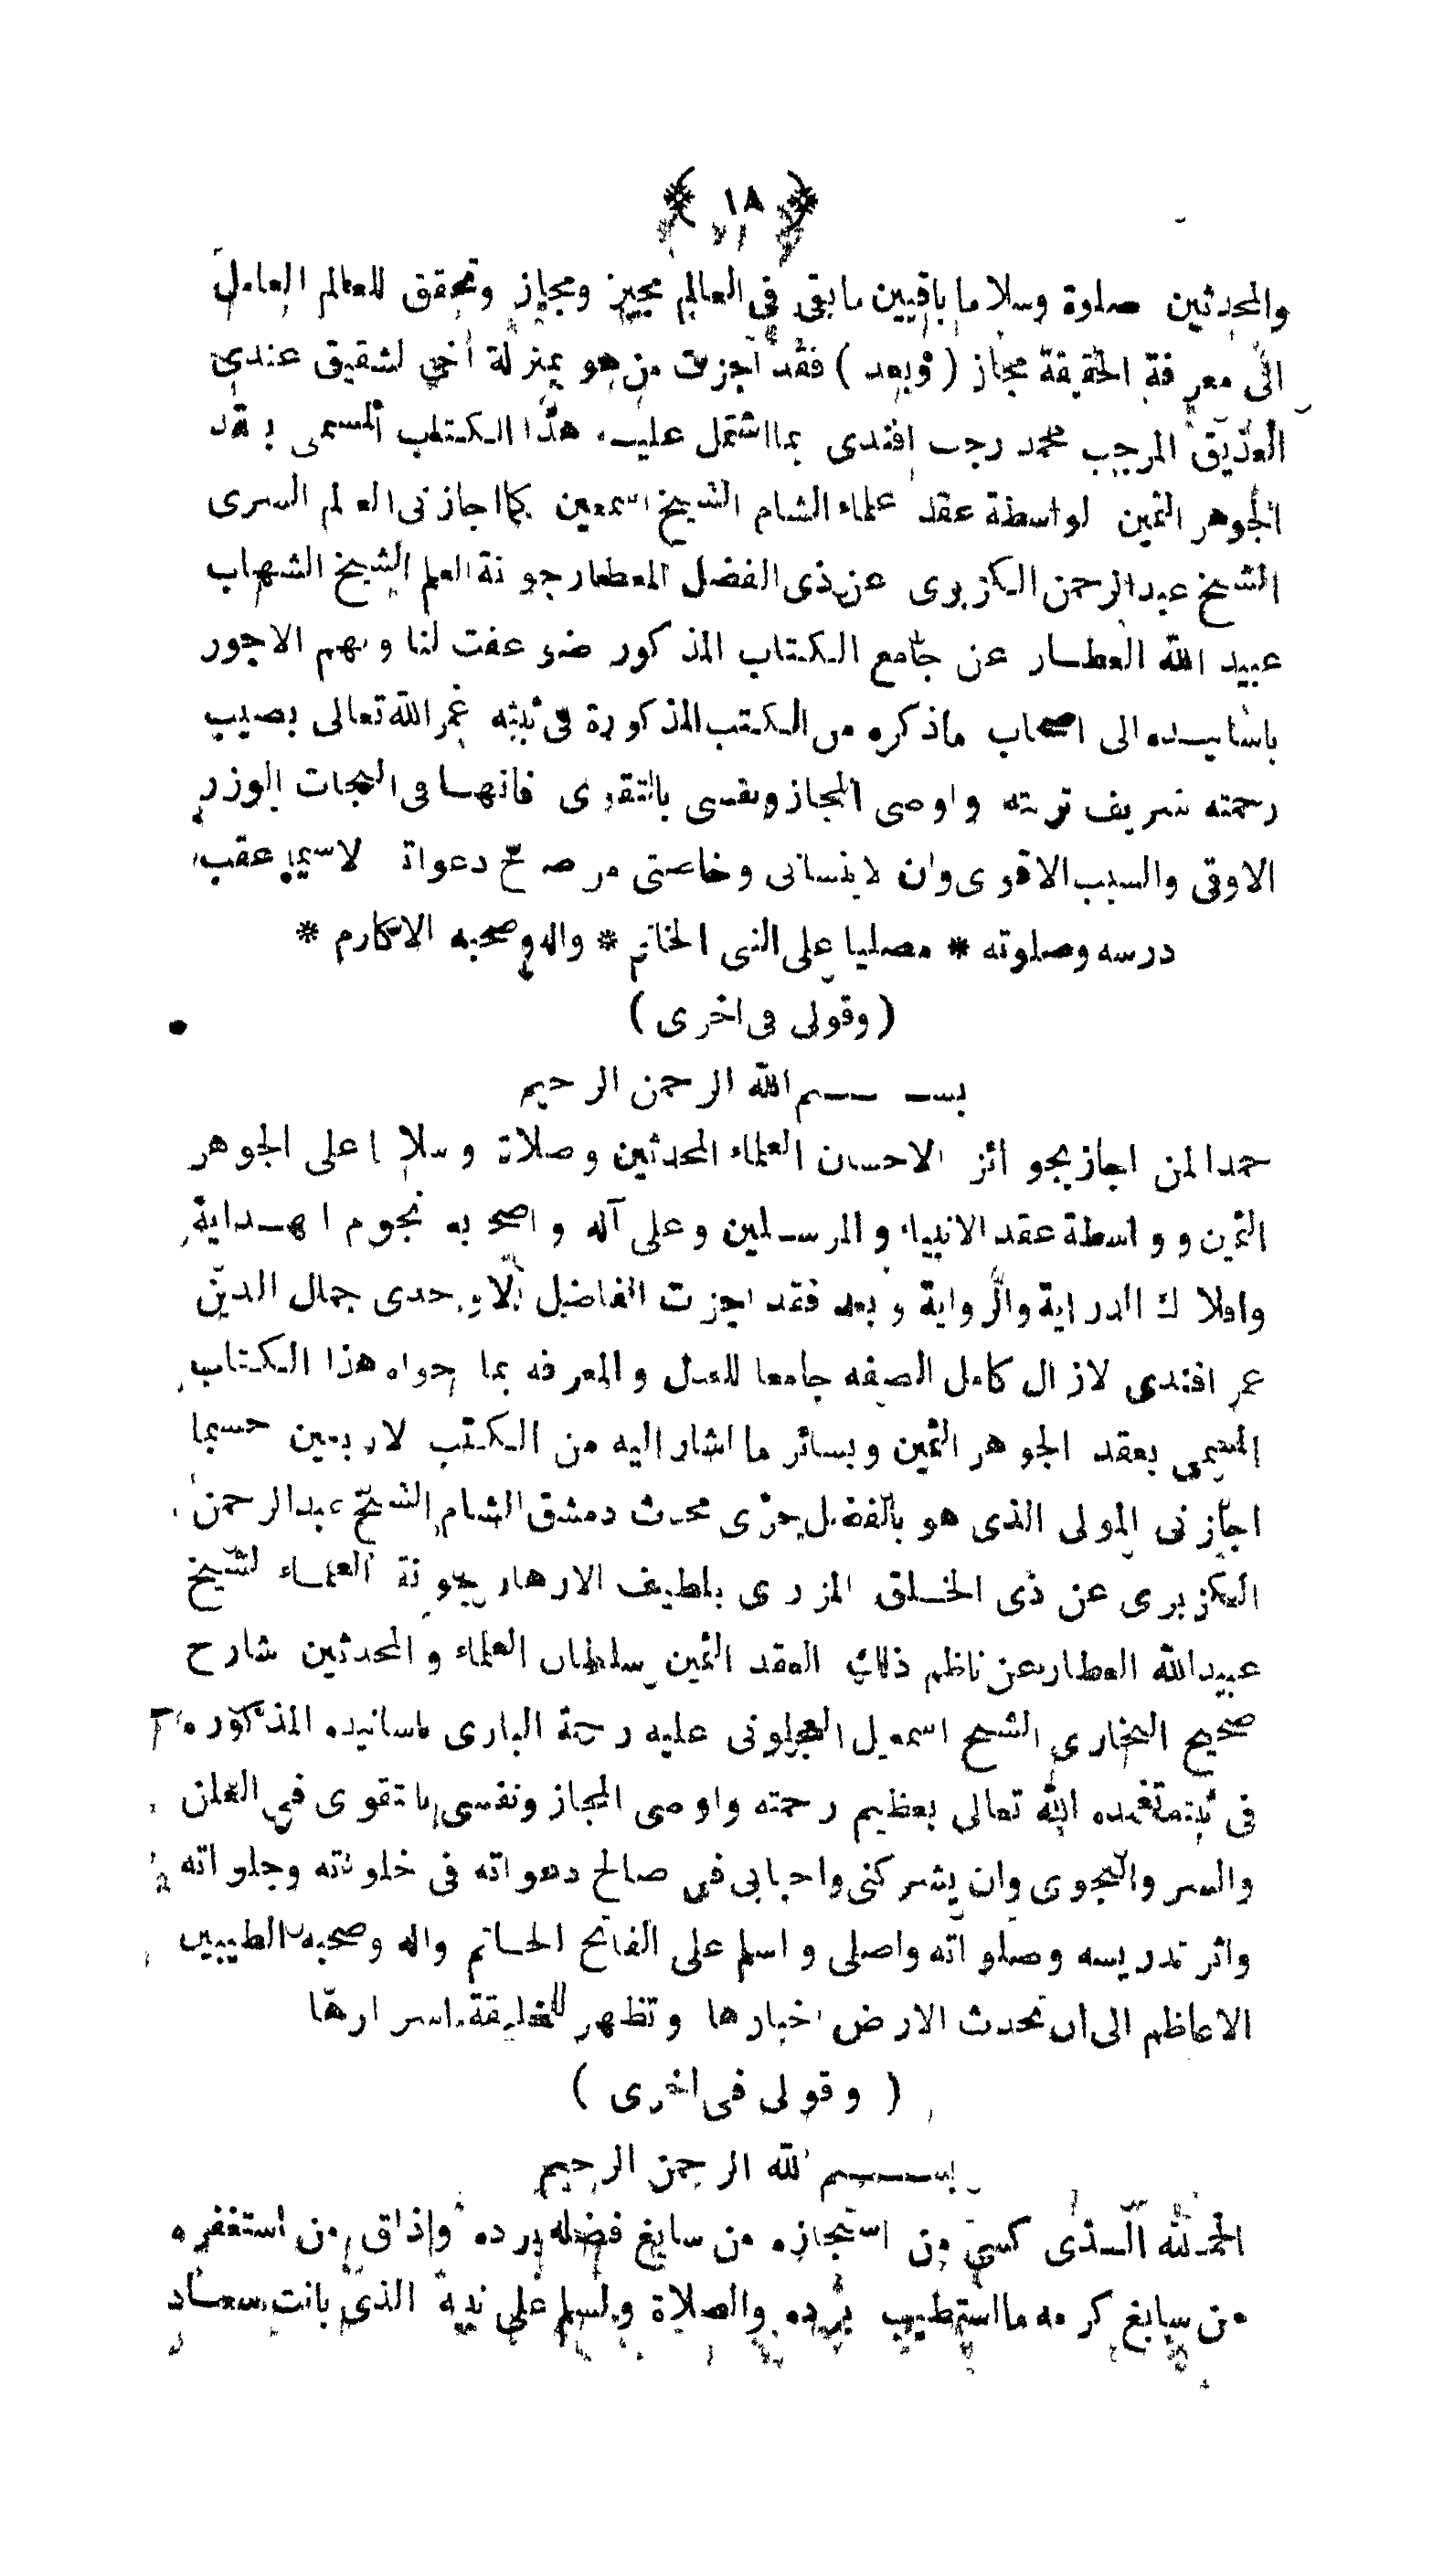 ﴿ ١٨ ﴾
والمحدثين صلوة وسلاما باقيين مابقى فى العالم مجيز ومجاز وتحقق للعالم العامل
الى معرفة الحقيقة مجاز ( وبعد ) فقد اجزت من هو بمنزلة أخى لشقيق عندى
العذيق المرجب محمد رجب افندى بمااشتمل عليه هذا الكتاب المسمى بعقد
الجوهر الثمين لواسطة عقد علماء الشام الشيخ اسمعيل كما اجازنى العالم السرى
الشيخ عبدالرحمن الكزبرى عن ذى الفضل المعطار جونة العلم الشيخ الشهاب
عبيد الله العطار عن جامع الكتاب المذكور ضوعفت لنا وبهم الاجور
باسانيده الى اصحاب ماذكره من الكتب المذكورة فى ثبته غمر الله تعالى بصيب
رحمته شريف تربته واوصى المجاز ونفسى بالتقوى فانهسا فى النجات الوزر
الاوقى والسبب الاقوى وان لاينسانى وخاصتى من صالح دعواته لاسيما عقب
درسه وصلوته * مصليا على النبى الخاتم * واله وصحبه الاكارم *
( وقولى فى اخرى )
بســـــم الله الرحمن الرحيم
حمدا لمن اجاز بجوائز الاحسان العلماء المحدثين وصلاة وسلاما على الجوهر
الثمين وواسطة عقد الانبياء والمرسلين وعلى آله واصحابه نجوم الهداية
وافلاك الدراية والرواية وبعد فقد اجزت الفاضل الاوحدى جمال الدين
عمر افندى لازال كامل الصفه جامعا للعدل والمعرفه بما حواه هذا الكتاب
المسمى بعقد الجوهر الثمين وبسائر ما اشار اليه من الكتب لاربعين حسبما
اجازنى المولى الذى هو بالفضل حرى محدث دمشق الشام الشيخ عبدالرحمن
الكزبرى عن ذى الخلق المزرى بلطيف الازهار جونة العلماء لشيخ
عبيدالله العطار عن ناظم ذلك العقد الثمين سلطان العلماء والمحدثين شارح
صحيح البخارى الشيخ اسمعيل العجلونى عليه رحمة البارى باسانيده المذكوره
فى ثبته تغمده الله تعالى بعظيم رحمته واوصى المجاز ونفسى بالتقوى فى العلن
والسر والنجوى وان يشركنى واحبابى فى صالح دعواته فى خلواته وجلواته
واثر تدريسه وصلواته واصلى واسلم على الفاتح الخاتم واله وصحبه الطيبين
الاعاظم الى ان تحدث الارض اخبارها وتظهر للخليقة اسرارها
( وقولى فى اخرى )
بســـــم الله الرحمن الرحيم
الحمد لله الــذى كسى من استجازه من سابغ فضله برده واذاق من استغفره
من سابغ كرمه مااستطيب برده والصلاة والسلم على نبيه الذى بانت سعاد